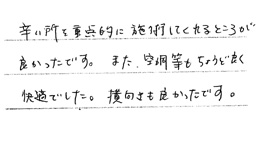 辛い所を重点的に施術してくれるところが
良かったです。また、空調等もちょうど良く
快適でした。横向きも良かったです。